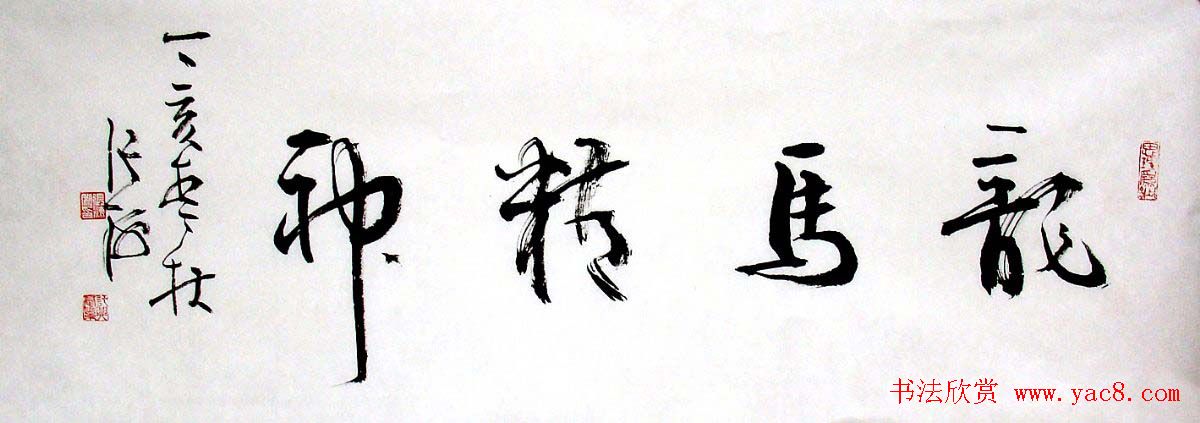 龍馬精神
丁亥春於
书法欣赏 www.yac8.com